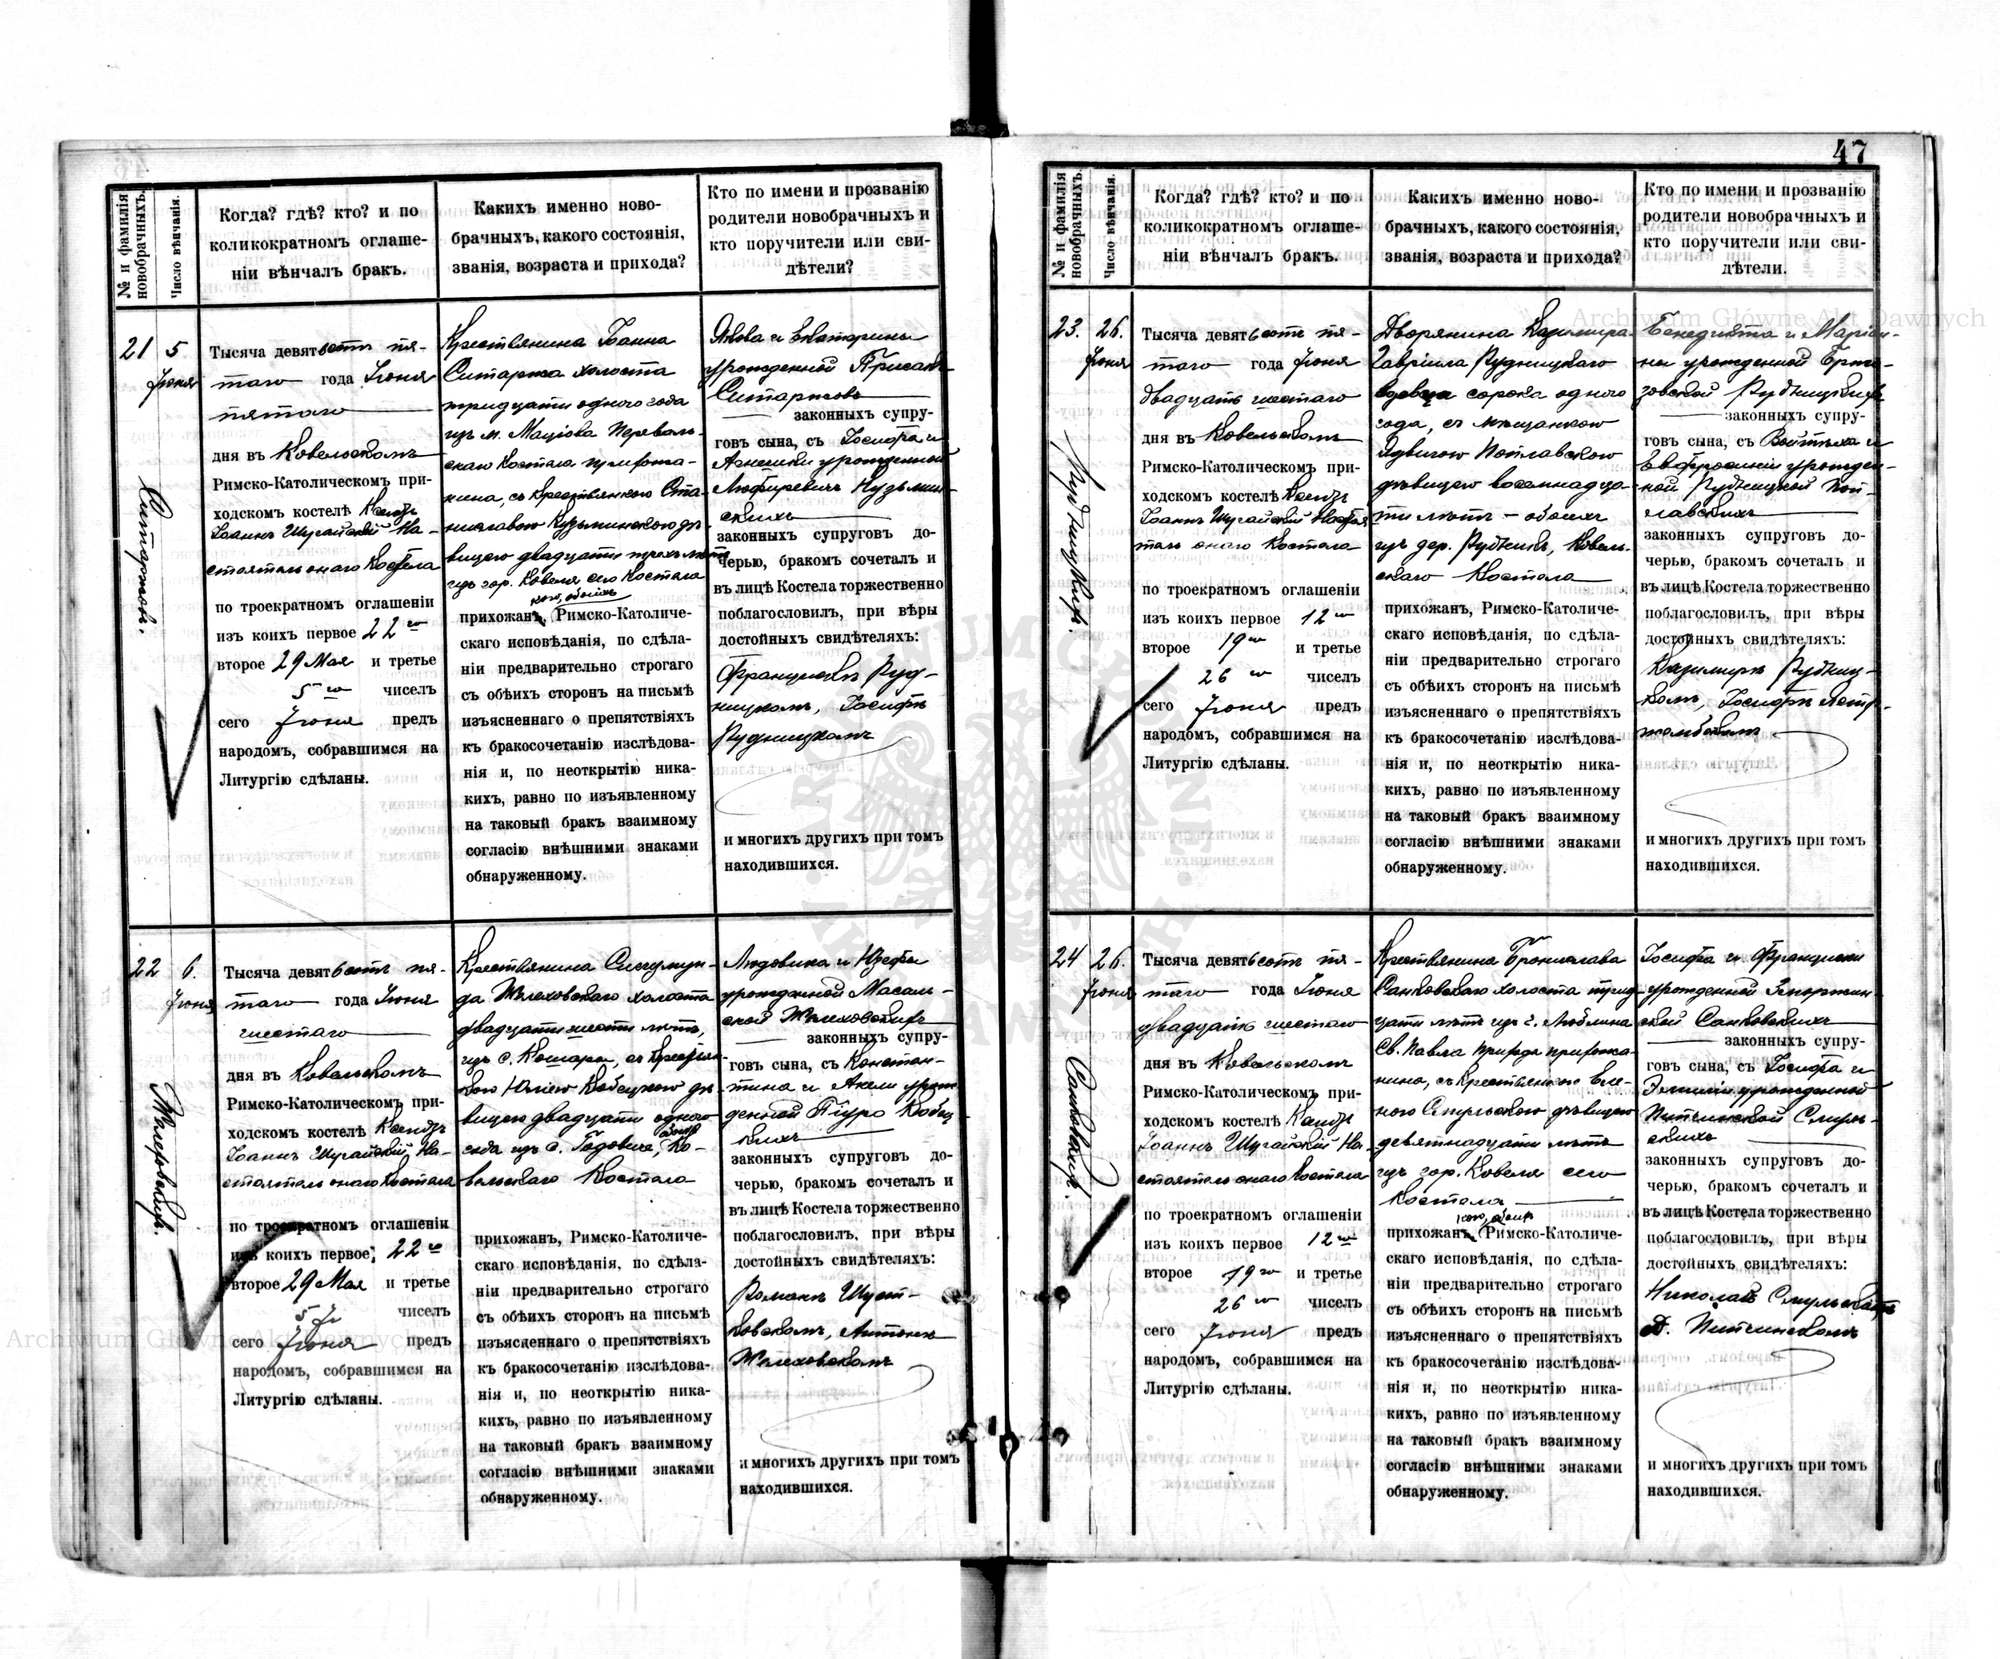 47
№ и фамилія новобрачныхъ.
Число вѣнчанія.
Когда? гдѣ? кто? и по
коликократномъ оглаше-
ніи вѣнчалъ бракъ.
Какихъ именно ново-
брачныхъ, какого состоянія,
званія, возраста и прихода?
Кто по имени и прозванію
родители новобрачныхъ и
кто поручители или сви-
дѣтели?
21
5
Іюня
Тысяча девятьсотъ пя-
таго года Іюня
пятаго
дня въ Ковельскомъ
Римско-Католическомъ при-
ходскомъ костелѣ Ксендзъ
Іоаннъ Шугайскій На-
стоятель онаго Костела
по троекратномъ оглашеніи
изъ коихъ первое 22го
второе 29 Мая и третье
5го чиселъ
сего Іюня предъ
народомъ, собравшимся на
Литургію сдѣланы.
Крестьянина Іоанна
Ситаржа холоста
тридцати одного года
изъ м. Маціова Переваль-
скаго Костела прихожа-
нина, съ крестьянкою Ста-
ниславою Кузьминскою дѣ-
вицею двадцати трехъ лѣтъ
изъ гор. Ковеля сего Костела
кою, обоихъ
прихожан, Римско-Католиче-
скаго исповѣданія, по сдѣла-
ніи предварительно строгаго
съ обѣихъ сторонъ на письмѣ
изъясненнаго о препятствіяхъ
къ бракосочетанію изслѣдова-
нія и, по неоткрытію ника-
кихъ, равно по изъявленному
на таковый бракъ взаимному
согласію внѣшними знаками
обнаруженному.
Якова и Екатерины
урожденной
Ситаржовъ
законныхъ супру-
говъ сына, съ Іосифа и
Агнешки урожденной
Кузьмин-
скихъ
законныхъ супруговъ до-
черью, бракомъ сочеталъ и
въ лицѣ Костела торжественно
поблагословилъ, при вѣры
достойныхъ свидѣтеляхъ:
Францискѣ Руд-
ницкомъ, Іосифѣ
Рудницкомъ
и многихъ другихъ при томъ
находившихся.
Ситаржовъ.
22
6.
Іюня
Тысяча девятьсотъ пя-
таго года Іюня
шестаго
дня въ Ковельскомъ
Римско-Католическомъ при-
ходскомъ костелѣ Ксендзъ
Іоаннъ Шугайскій На-
стоятель онаго Костела
по троекратномъ оглашеніи
изъ коихъ первое 22го
второе 29 Мая и третье
5го чиселъ
сего Іюня предъ
народомъ, собравшимся на
Литургію сдѣланы.
Крестьянина Сигизмун-
да Желеховскаго холоста
двадцати шести лѣтъ,
изъ с. Кошара, съ крестьян-
кою Юліею Кобецкою дѣ-
вицею двадцати одного
года изъ с. обоихъ Ко-
вельскаго Костела
прихожан, Римско-Католиче-
скаго исповѣданія, по сдѣла-
ніи предварительно строгаго
съ обѣихъ сторонъ на письмѣ
изъясненнаго о препятствіяхъ
къ бракосочетанію изслѣдова-
нія и, по неоткрытію ника-
кихъ, равно по изъявленному
на таковый бракъ взаимному
согласію внѣшними знаками
обнаруженному.
Людовика и Юзефы
урожденной Масаль-
ской Желеховскихъ
законныхъ супру-
говъ сына, съ Констан-
тина и Анели урож-
денной Піуро Кобец-
кихъ
законныхъ супруговъ до-
черью, бракомъ сочеталъ и
въ лицѣ Костела торжественно
поблагословилъ, при вѣры
достойныхъ свидѣтеляхъ:
Романѣ Шуст-
ковскомъ, Антонѣ
Желеховскомъ
и многихъ другихъ при томъ
находившихся.
Желеховскихъ.
№ и фамилія новобрачныхъ.
Число вѣнчанія.
Когда? гдѣ? кто? и по
коликократномъ оглаше-
ніи вѣнчалъ бракъ.
Какихъ именно ново-
брачныхъ, какого состоянія,
званія, возраста и прихода?
Кто по имени и прозванію
родители новобрачныхъ и
кто поручители или сви-
дѣтели.
23.
26.
Іюня
Тысяча девятьсотъ пя-
таго года Іюня
двадцать шестаго
дня въ Ковельскомъ
Римско-Католическомъ при-
ходскомъ костелѣ Ксендзъ
Іоаннъ Шугайскій Настоя-
тель онаго Костела
по троекратномъ оглашеніи
изъ коихъ первое 12го
второе 19го и третье
26го чиселъ
сего Іюня предъ
народомъ, собравшимся на
Литургію сдѣланы.
Дворянина Казимира-
Гавріила Рудницкаго
вдовца сорока одного
года, съ мѣщанкою
Ядвигою Пославскою
дѣвицею восемнадца-
ти лѣтъ — обоихъ
изъ дер. Рудники, Ковель-
скаго Костела
прихожан, Римско-Католиче-
скаго исповѣданія, по сдѣла-
ніи предварительно строгаго
съ обѣихъ сторонъ на письмѣ
изъясненнаго о препятствіяхъ
къ бракосочетанію изслѣдова-
нія и, по неоткрытію ника-
кихъ, равно по изъявленному
на таковый бракъ взаимному
согласію внѣшними знаками
обнаруженному.
Бенедикта и Маріан-
ны урожденной Бржо-
зовской Рудницкихъ
законныхъ супру-
говъ сына, съ Войтѣха и
Евфросиніи урожден-
ной Рудницкой
законныхъ супруговъ до-
черью, бракомъ сочеталъ и
въ лицѣ Костела торжественно
поблагословилъ, при вѣры
достойныхъ свидѣтеляхъ:
Казимирѣ Рудниц-
комъ, Іосифѣ
и многихъ другихъ при томъ
находившихся.
Рудницкихъ.
24
26.
Іюня
Тысяча девятьсотъ пя-
таго года Іюня
двадцать шестаго
дня въ Ковельскомъ
Римско-Католическомъ при-
ходскомъ костелѣ Ксендзъ
Іоаннъ Шугайскій На-
стоятель онаго Костела
по троекратномъ оглашеніи
изъ коихъ первое 12го
второе 19го и третье
26го чиселъ
сего Іюня предъ
народомъ, собравшимся на
Литургію сдѣланы.
Крестьянина Бронислава
Санковскаго холоста трид-
цати лѣтъ изъ г. Люблина
Св. Павла прихода прихожа-
нина, съ крестьянкою Еле-
ною Смульскою дѣвицею
девятнадцати лѣтъ
изъ гор. Ковеля сего
Костела
кою, обоихъ
прихожан, Римско-Католиче-
скаго исповѣданія, по сдѣла-
ніи предварительно строгаго
съ обѣихъ сторонъ на письмѣ
изъясненнаго о препятствіяхъ
къ бракосочетанію изслѣдова-
нія и, по неоткрытію ника-
кихъ, равно по изъявленному
на таковый бракъ взаимному
согласію внѣшними знаками
обнаруженному.
Іосифа и Францишки
урожденной
Санковскихъ
законныхъ супру-
говъ сына, съ Іосифа и
Эмиліи урожденной
Питчинской Смуль-
скихъ
законныхъ супруговъ до-
черью, бракомъ сочеталъ и
въ лицѣ Костела торжественно
поблагословилъ, при вѣры
достойныхъ свидѣтеляхъ:
Николаѣ Смульскомъ
Питчинскомъ
и многихъ другихъ при томъ
находившихся.
Санковскихъ.
Archiwum Główne Akt Dawnych
Archiwum Główne Akt Dawnych
ARCHIWUM GŁÓWNE AKT DAWNYCH